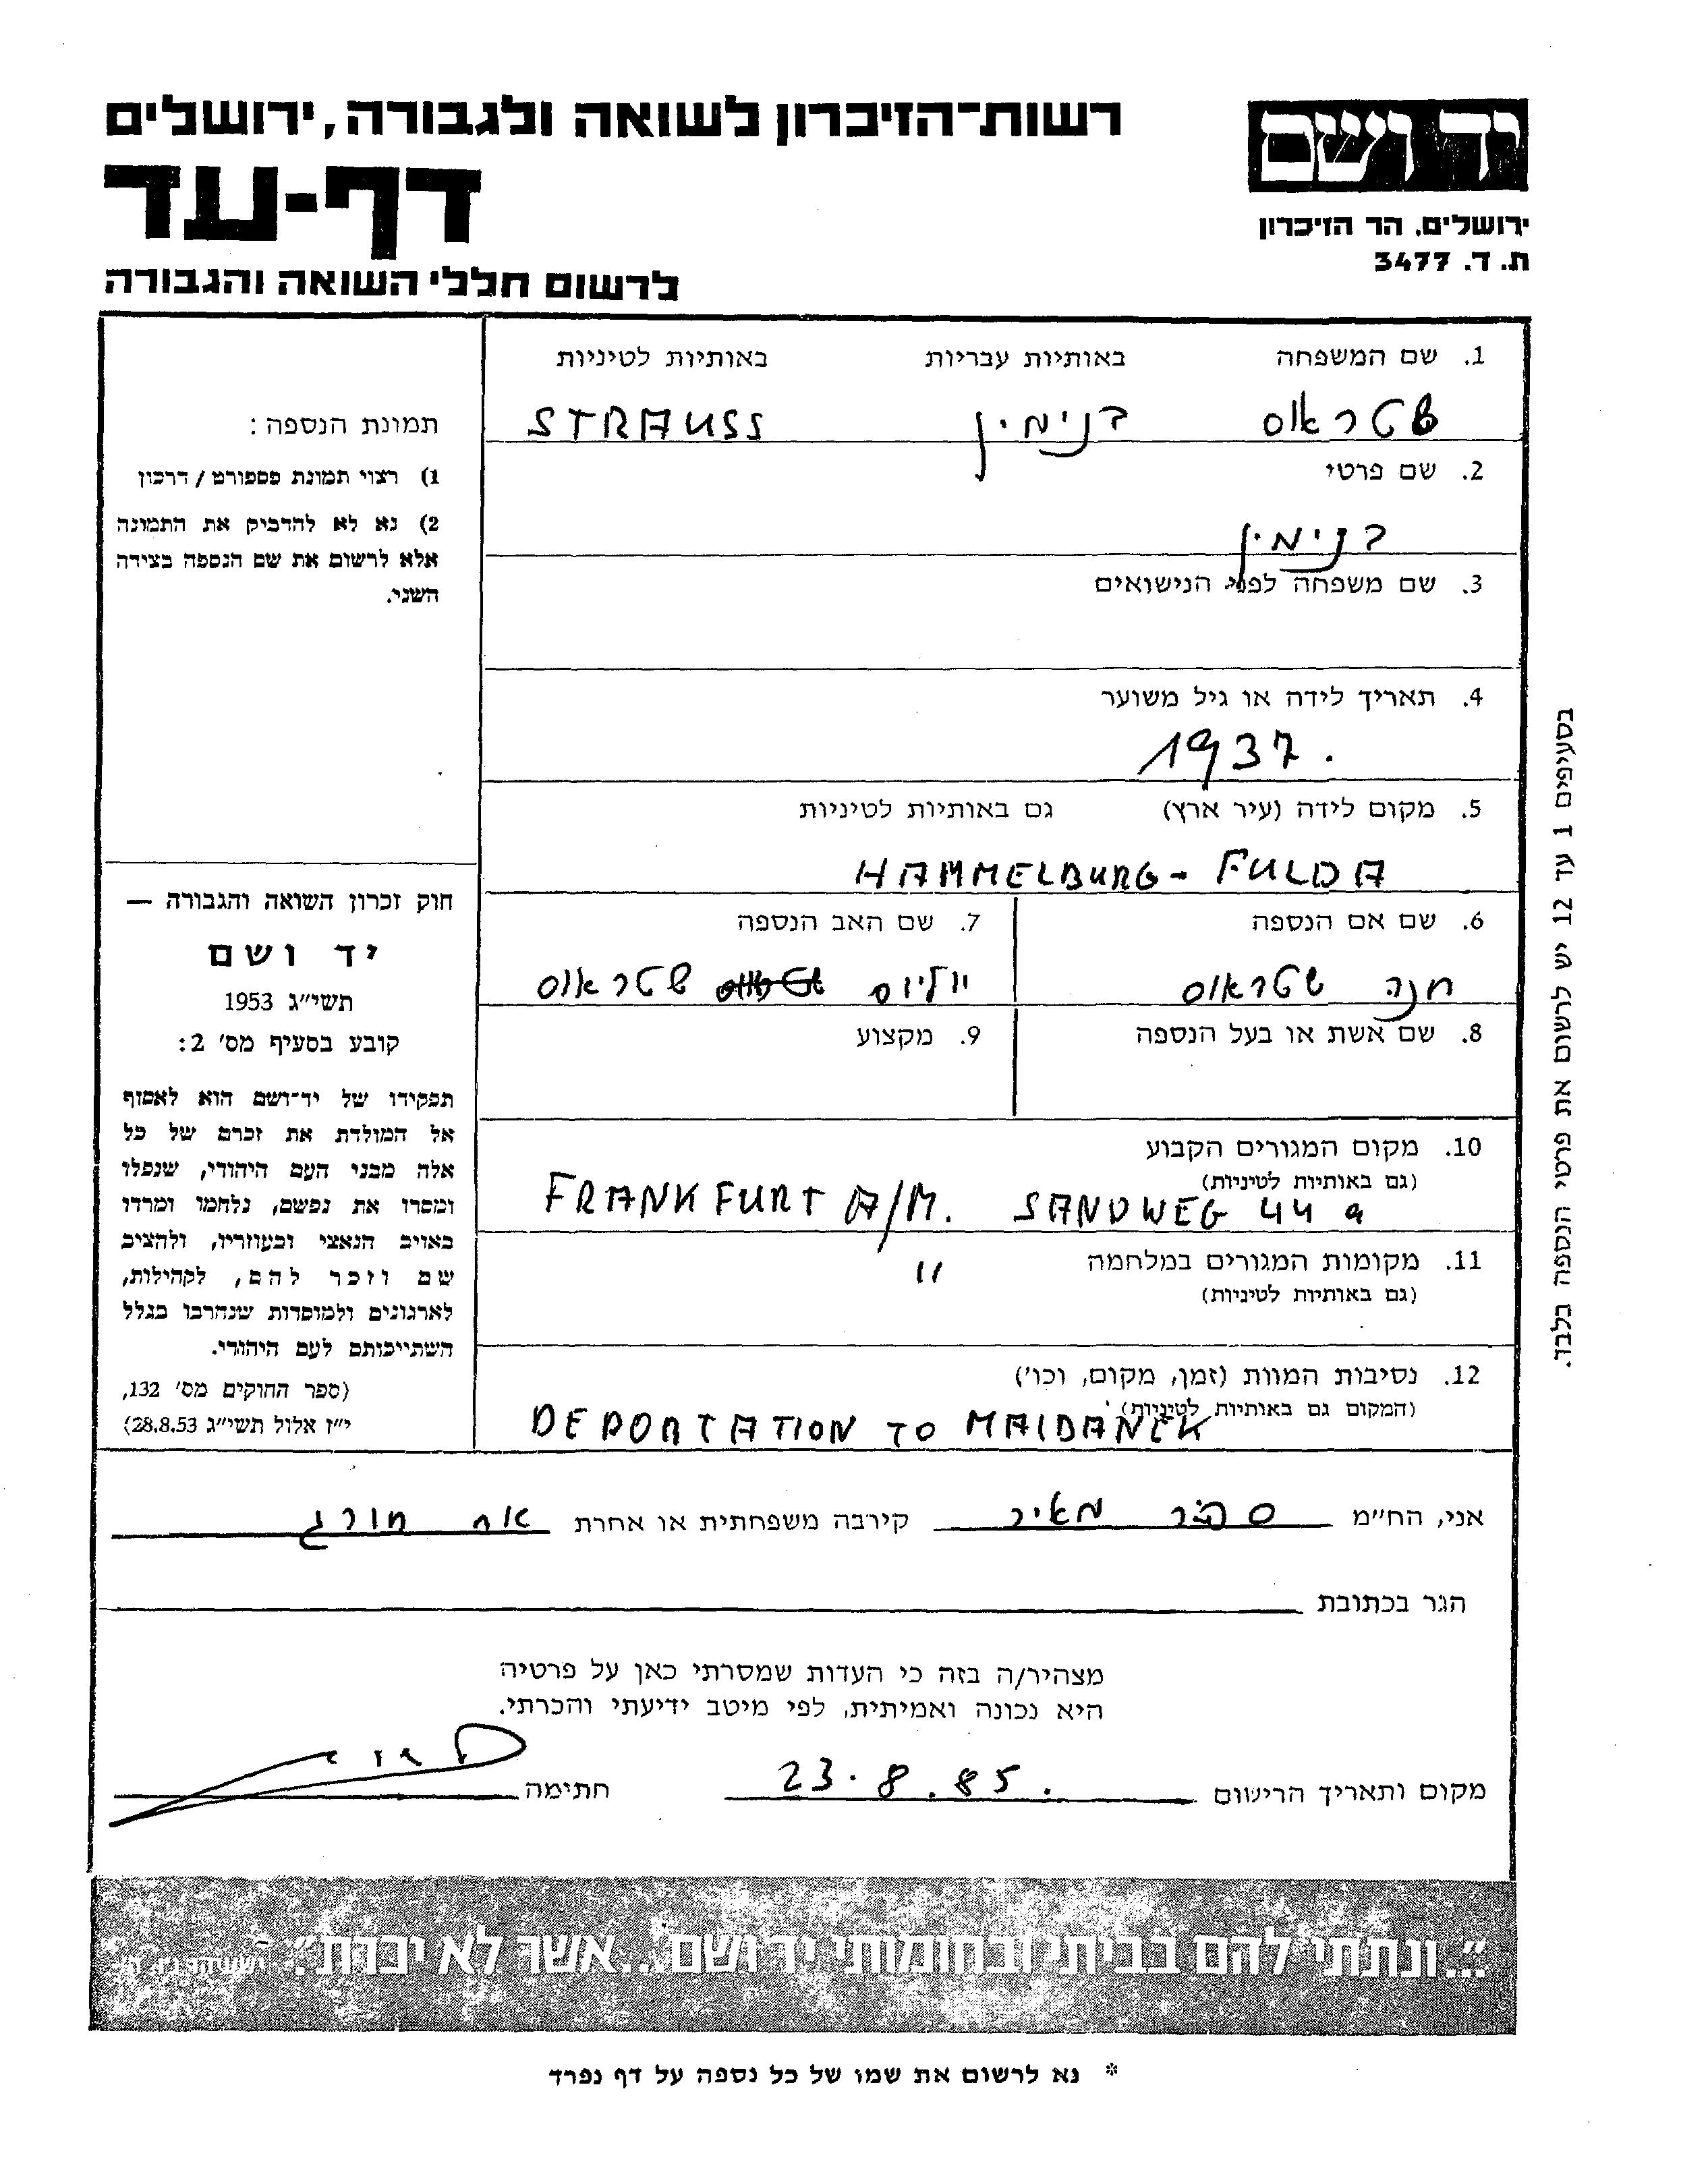 רשות־הזיכרון לשואה ולגבורה, ירושלים
יד ושם
דף-עד
ירושלים, הר הזיכרון
ת. ד. 3477
לרשום חללי השואה והגבורה
1. שם המשפחה באותיות עבריות באותיות לטיניות
שטראוס בנימין STRAUSS
2. שם פרטי
בנימין
3. שם משפחה לפני הנישואים
4. תאריך לידה או גיל משוער
1937.
5. מקום לידה (עיר ארץ) גם באותיות לטיניות
HAMMELBURG - FULDA
6. שם אם הנספה 7. שם האב הנספה
חנה שטראוס יוליוס שטראוס
8. שם אשת או בעל הנספה 9. מקצוע
10. מקום המגורים הקבוע
(גם באותיות לטיניות)
FRANKFURT A/M. SANDWEG 44 a
11. מקומות המגורים במלחמה
"
(גם באותיות לטיניות)
12. נסיבות המוות (זמן, מקום, וכו')
(המקום גם באותיות לטיניות)
DEPORTATION TO MAIDANEK
תמונת הנספה:
1) רצוי תמונת פספורט / דרכון
2) נא לא להדביק את התמונה
אלא לרשום את שם הנספה בצידה
השני.
חוק זכרון השואה והגבורה —
יד ושם
תשי"ג 1953
קובע בסעיף מס' 2:
תפקידו של יד־ושם הוא לאסוף
אל המולדת את זכרם של כל
אלה מבני העם היהודי, שנפלו
ומסרו את נפשם, נלחמו ומרדו
באויב הנאצי ובעוזריו, ולהציב
שם וזכר להם, לקהילות,
לארגונים ולמוסדות שנהרבו בגלל
השתייכותם לעם היהודי.
(ספר החוקים מס' 132,
י"ז אלול תשי"ג 28.8.53)
בסעיפים 1 עד 12 יש לרשום את פרטי הנספה בלבד.
אני, הח"מ מאיר קירבה משפחתית או אחרת אח חורג
הגר בכתובת
מצהיר/ה בזה כי העדות שמסרתי כאן על פרטיה
היא נכונה ואמיתית, לפי מיטב ידיעתי והכרתי.
מקום ותאריך הרישום 23.8.85. חתימה
"...ונתתי להם בביתי ובחומותי יד ושם...אשר לא יכרת". ישעיהו נ"ו, ה'
* נא לרשום את שמו של כל נספה על דף נפרד